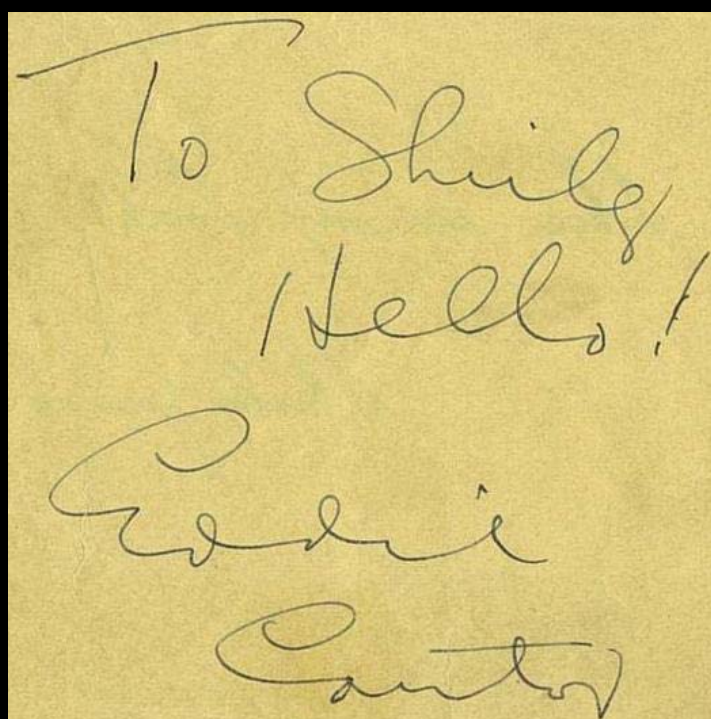 To Sheila
Hello!
Eddie
Cantor